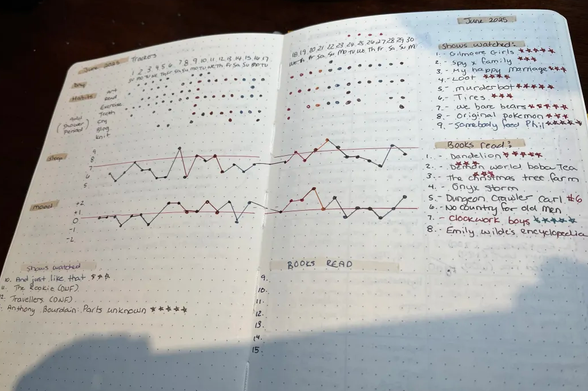 June 2025 Trackers
1 2 3 4 5 6 7 8 9 10 11 12 13 14 15 16 17
18 19 20 21 22 23 24 25 26 27 28 29 30
Art
Read
Exercise
Teeth
Cry
Knit
Sleep
9
8
7
6
5
Mood
+2
+1
0
-1
-2
Shows watched
10. And just like that ***
The Rookie (DNF)
Travellers (DNF)
Anthony Bourdain Parts unknown *****
BOOKS READ
9.
10.
11.
12.
13.
14.
15.
June 2025
Shows watched:
1. - Gilmore Girls *****
2. - Spy x family ****
3. - My happy marriage ***
4. - Loot ****
5. - murderbot *****
6. - Tires ***
7. - we bare bears *****
8. - original pokemon ****
9. - Somebody feed Phil *****
Books read:
1. - Dandelion *****
2. - Demon world boba Tea
3. - The Christmas tree farm
4. - Onyx storm
5. - Dungeon Crawler Carl #6
6. - No country for old men
7. - Clockwork boys *****
8. - Emily wilde's encyclopedia